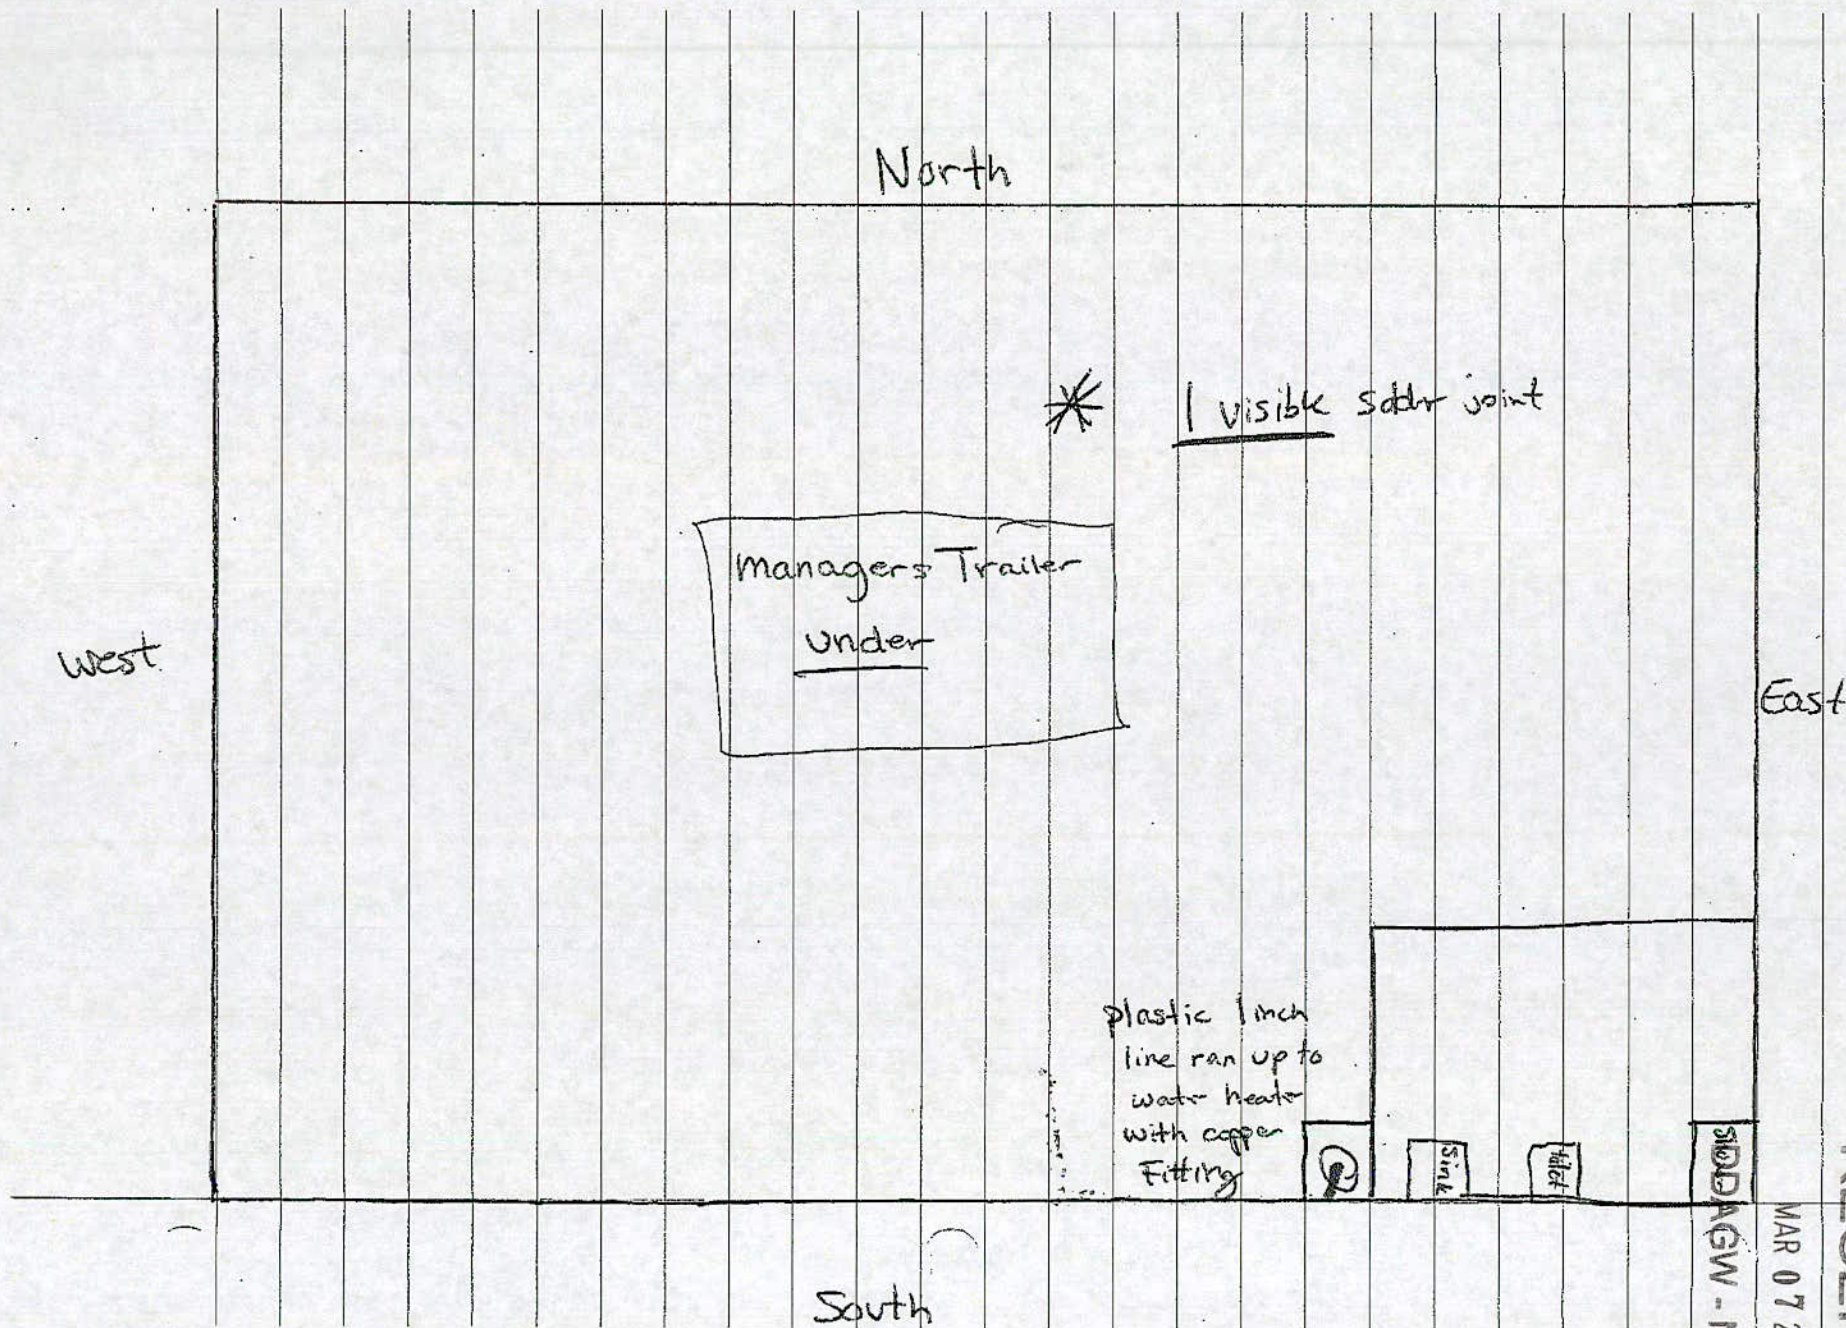 North
1 visible solder joint
managers Trailer
under
West
East
plastic 1 inch
line ran up to
water heater
with copper
Fitting
Sink
toilet
South
MAR 07 2
DDAGW -